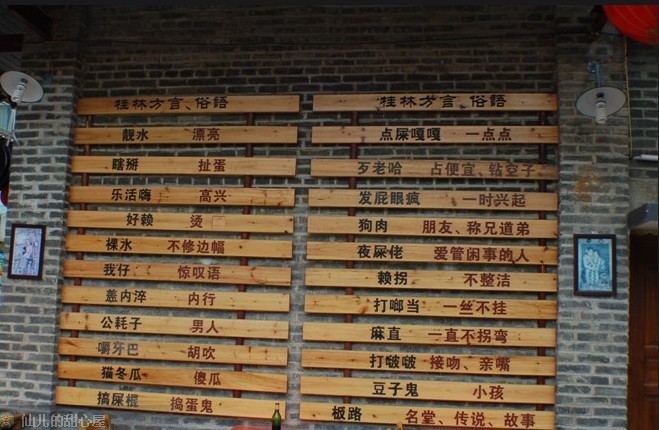 桂林方言、俗語
靓水 漂亮
瞎掰 扯蛋
乐活嗨 高兴
好赖 烫
裸水 不修边幅
我仔 惊叹语
盖内淬 内行
公耗子 男人
嚼牙巴 胡吹
猫冬瓜 傻瓜
搞屎棍 捣蛋鬼
桂林方言、俗語
点屎嘎嘎 一点点
歹老哈 占便宜、钻空子
发屁眼疯 一时兴起
狗肉 朋友、称兄道弟
夜屎佬 爱管闲事的人
赖拐 不整洁
打啷当 一丝不挂
麻直 一直不拐弯
打啵啵 接吻、亲嘴
豆子鬼 小孩
板路 名堂、传说、故事
仙儿的甜心屋